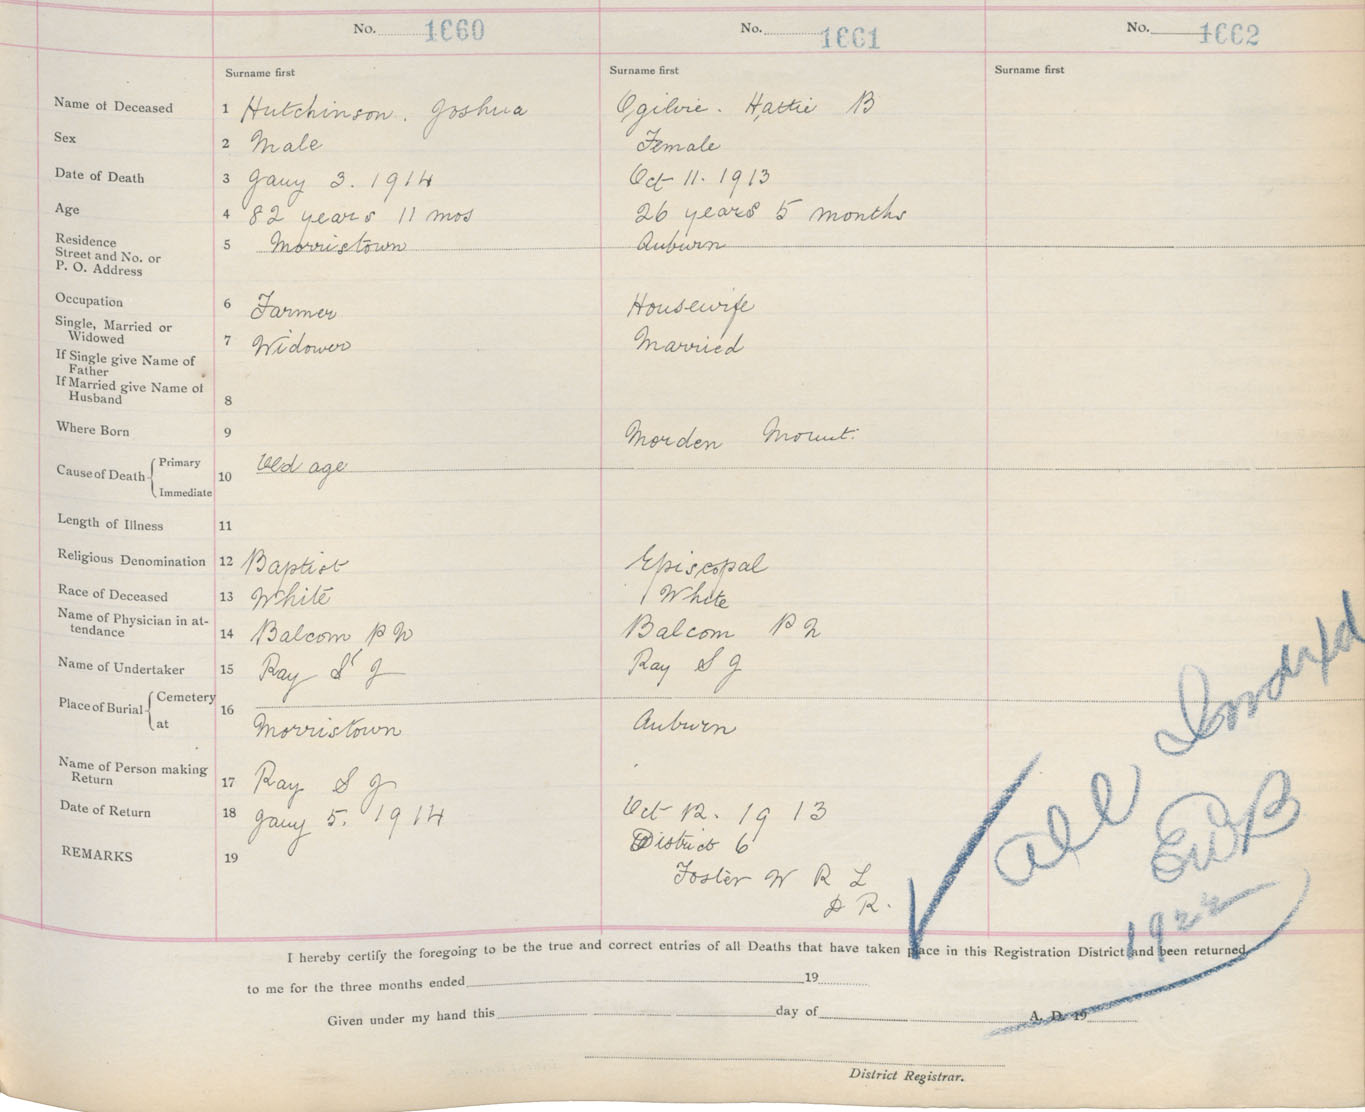 No. 1660 No. 1661 No. 1662
Surname first Surname first Surname first
Name of Deceased 1 Hutchinson. Joshua Ogilvie. Hattie B
Sex 2 Male Female
Date of Death 3 Jany 3. 1914 Oct 11. 1913
Age 4 82 years 11 mos 26 years 5 months
Residence
Street and No. or
P. O. Address 5 Morristown Auburn
Occupation 6 Farmer Housewife
Single, Married or
Widowed 7 Widower Married
If Single give Name of
Father
If Married give Name of
Husband 8
Where Born 9 Morden Mount.
Cause of Death Primary
Immediate 10 Old age
Length of Illness 11
Religious Denomination 12 Baptist Episcopal
Race of Deceased 13 White White
Name of Physician in at-
tendance 14 Balcom P N Balcom P N
Name of Undertaker 15 Ray S J Ray S J
Place of Burial Cemetery
at 16 Morristown Auburn
Name of Person making
Return 17 Ray S J
Date of Return 18 Jany 5. 1914 Oct 12. 1913
REMARKS 19 District 6
Foster W R L
D R.
All Indexed
EWB
1922
I hereby certify the foregoing to be the true and correct entries of all Deaths that have taken place in this Registration District and been returned
to me for the three months ended 19
Given under my hand this day of A. D. 19
District Registrar.